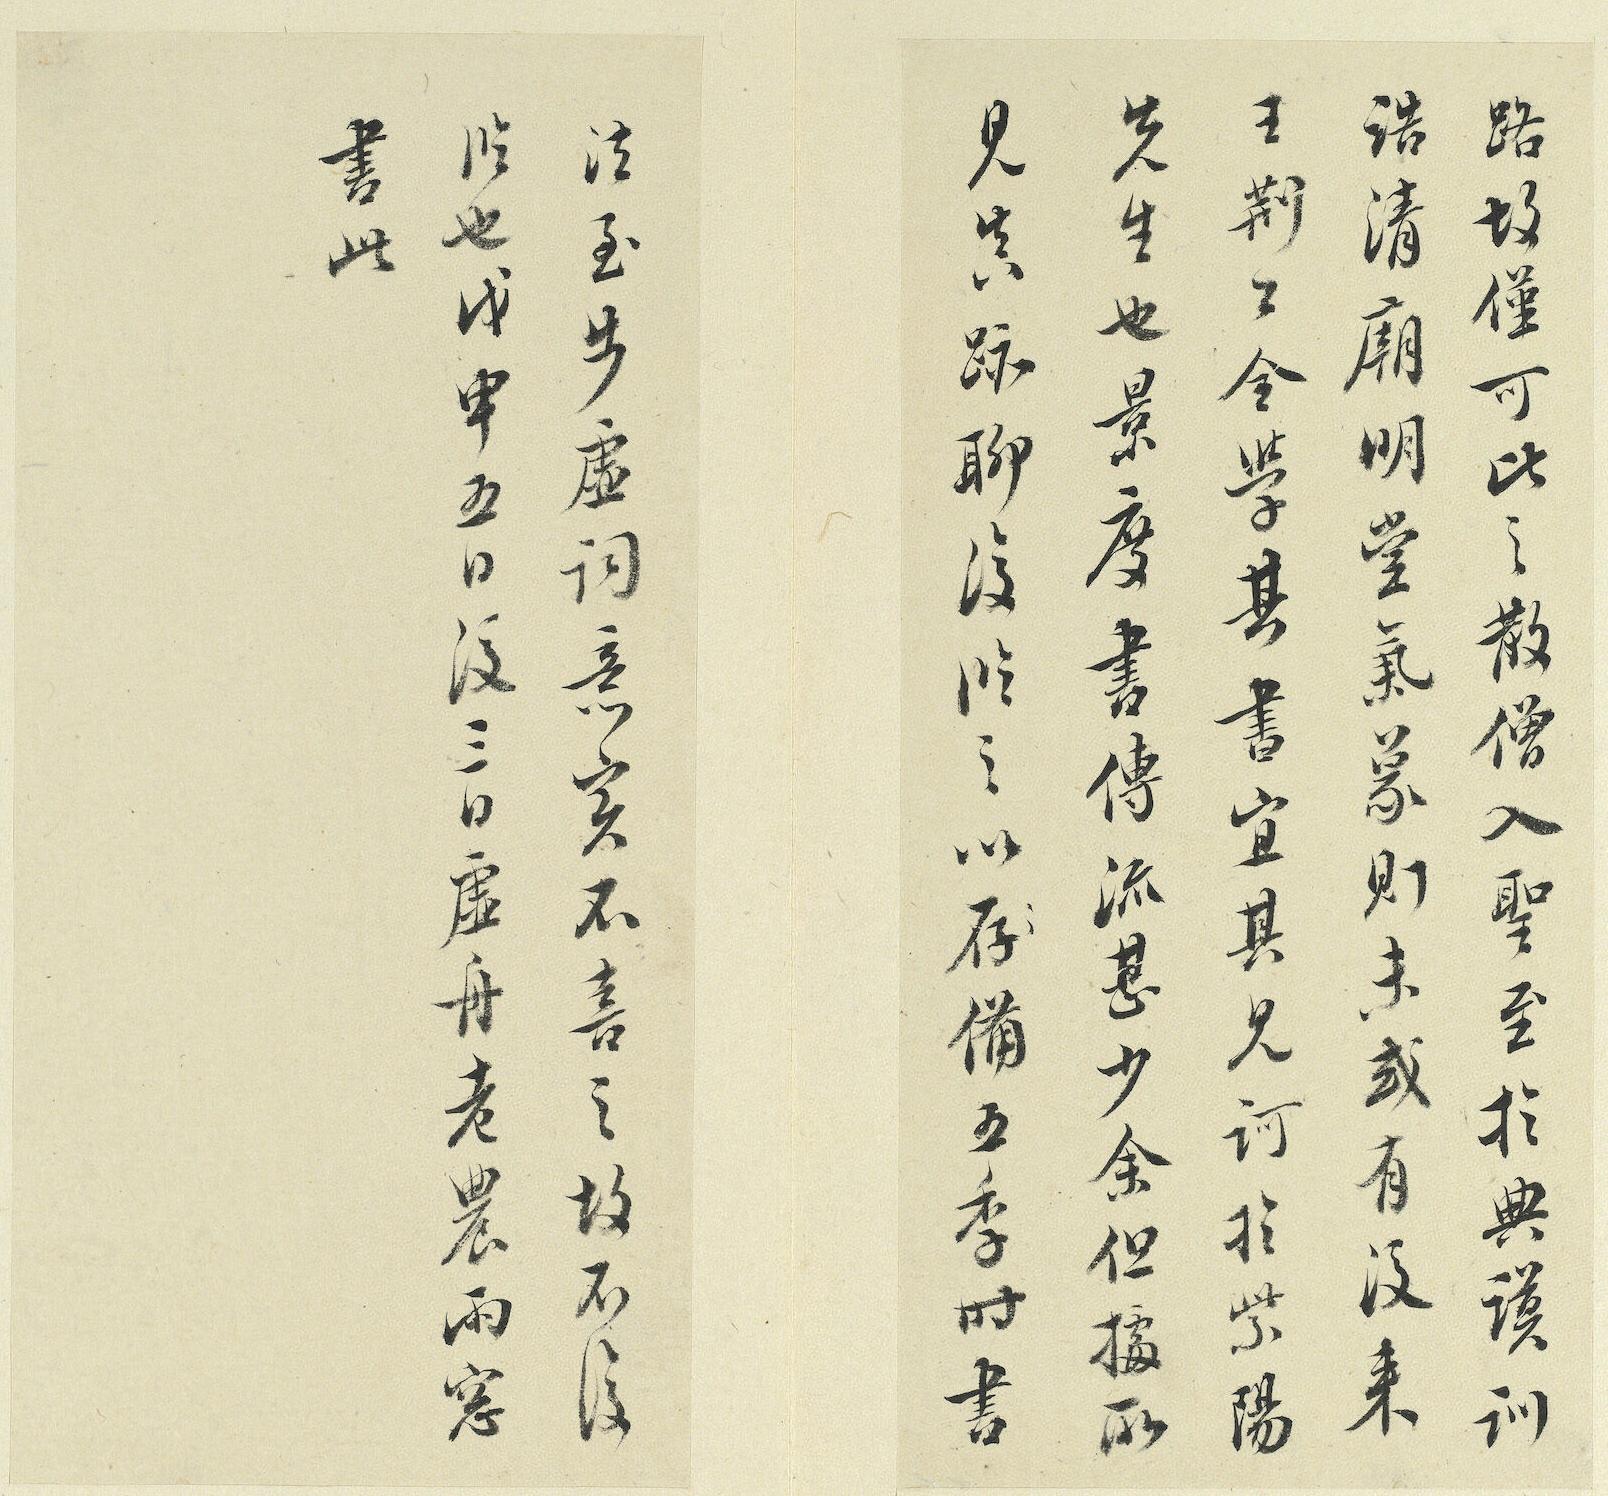 路故僅可比之散僧入聖至於典謨訓
誥清廟明堂氣象則未或有後来
王荆公全學其書宜其見訶於紫陽
先生也景度書傳流甚少余但據所
見真跡聊復臨之以存備五季時書
法至步虛詞意實不喜之故不復
臨也戊申五日後三日虛舟老農雨窓
書此